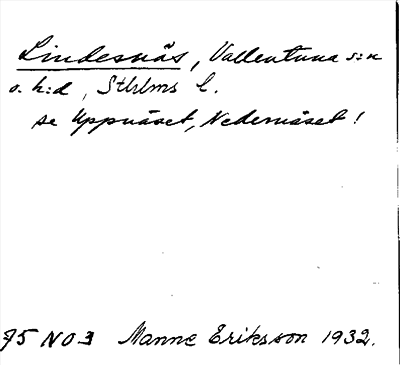 Lindesnäs, Vallentuna s:n
o. h:d, Sthlms l.
se Uppnäset, Nedernäset!
75 NO3 Manne Eriksson 1932.